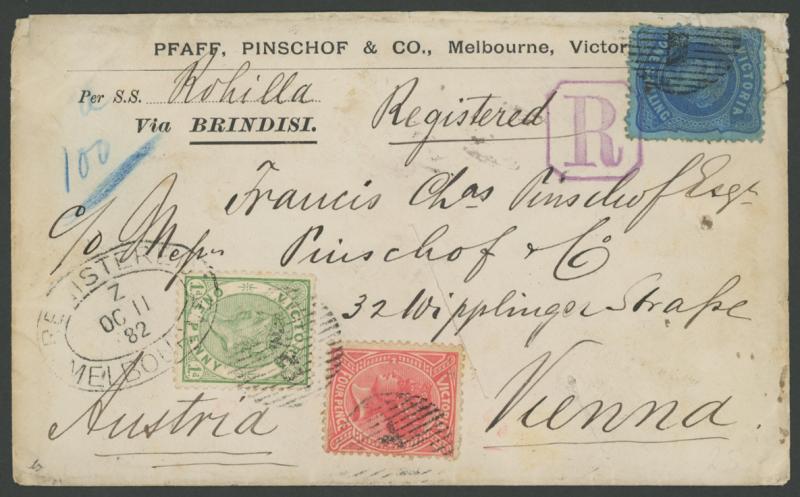 PFAFF, PINSCHOF & CO., Melbourne, Victor
Per S.S. Rohilla
Via BRINDISI.
Registered
R
100
VICTORIA
ONE SHILLING
Francis Chas Pinschof Esqr
c/o Messrs Pinschof & Co
32 Wipplinger-Straße
Vienna.
Austria
REGISTERED
Z
OC 11
82
MELBOURNE
VICTORIA
ONE PENNY
1d
1d
VICTORIA
FOUR PENCE